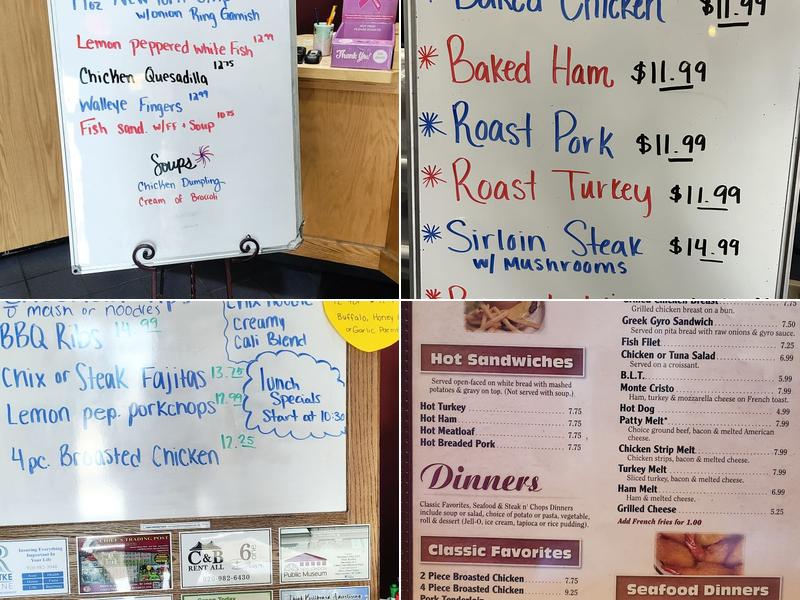 w/onion Ring Garnish
Lemon peppered white Fish 12.99
Chicken Quesadilla 12.75
Walleye Fingers 12.99
Fish sand. w/FF + Soup 10.75
Soups
Chicken Dumpling
Cream of Broccoli
Thank You!
Baked Chicken $11.99
Baked Ham $11.99
Roast Pork $11.99
Roast Turkey $11.99
Sirloin Steak $14.99
w/ Mushrooms
mash or noodles
BBQ Ribs 14.99
Chix or Steak Fajitas 13.75
Lemon pep. porkchops 12.99
4pc. Broasted Chicken 12.25
Creamy
Cali Blend
Lunch
Specials
Start at 10:30
Buffalo, Honey
or Garlic Parm
Insuring Everything
Important In
Your Life
C&B
RENT ALL
920-982-6430
Public Museum
Hot Sandwiches
Served open-faced on white bread with mashed
potatoes & gravy on top. (Not served with soup.)
Hot Turkey 7.75
Hot Ham 7.75
Hot Meatloaf 7.75
Hot Breaded Pork 7.75
Dinners
Classic Favorites, Seafood & Steak n' Chops Dinners
include soup or salad, choice of potato or pasta, vegetable,
roll & dessert (Jell-O, ice cream, tapioca or rice pudding).
Classic Favorites
2 Piece Broasted Chicken 7.75
4 Piece Broasted Chicken 9.25
Pork Tenderloin
Grilled Chicken Breast 7.75
Grilled chicken breast on a bun.
Greek Gyro Sandwich 7.50
Served on pita bread with raw onions & gyro sauce.
Fish Filet 7.25
Chicken or Tuna Salad 6.99
Served on a croissant.
B.L.T. 5.99
Monte Cristo 7.99
Ham, turkey & mozzarella cheese on French toast.
Hot Dog 4.99
Patty Melt* 7.99
Choice ground beef, bacon & melted American
cheese.
Chicken Strip Melt 7.99
Chicken strips, bacon & melted cheese.
Turkey Melt 7.99
Sliced turkey, bacon & melted cheese.
Ham Melt 6.99
Ham & melted cheese.
Grilled Cheese 5.25
Add French fries for 1.00
Seafood Dinners